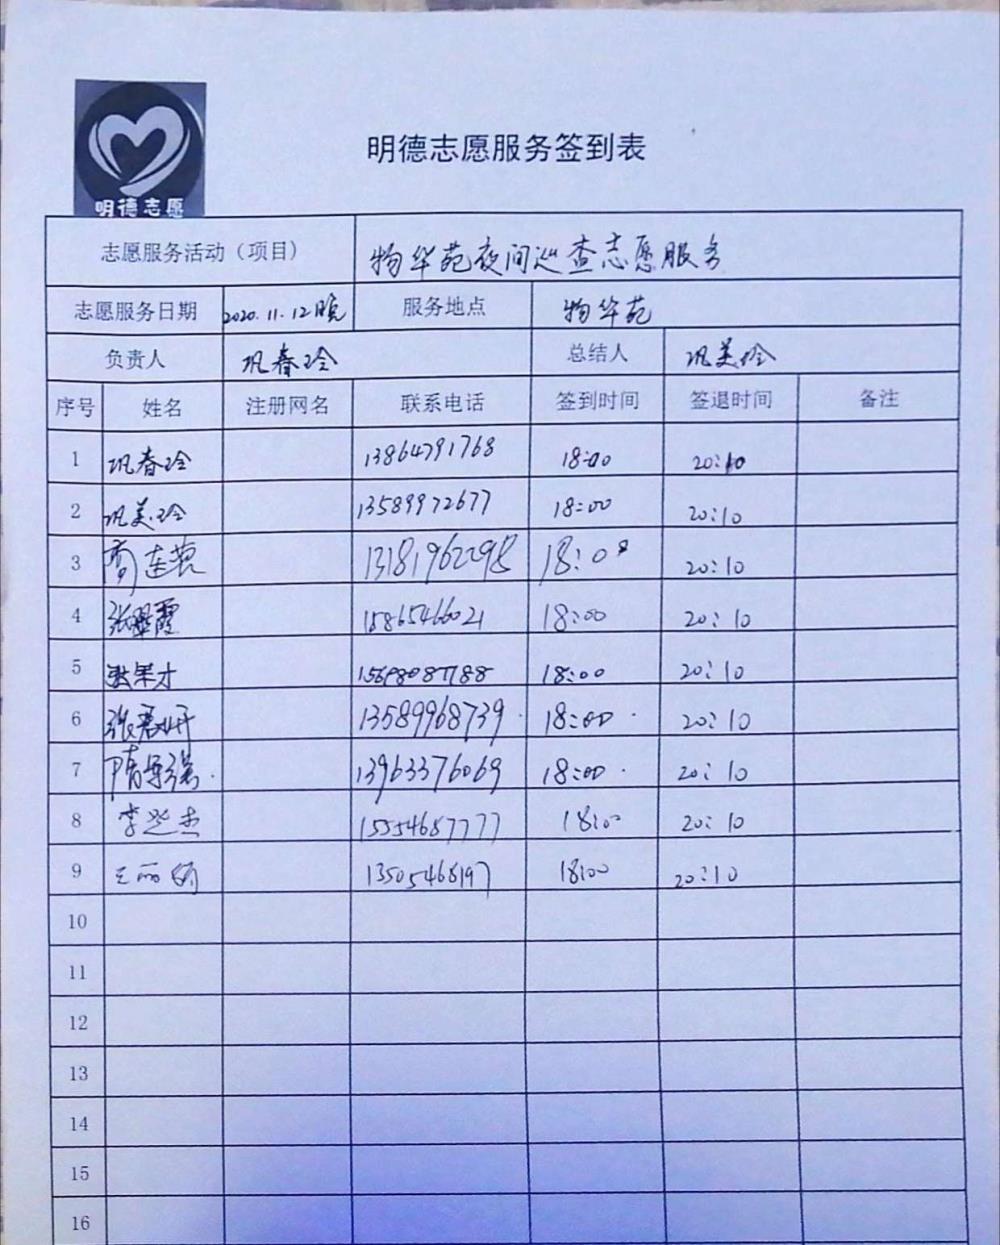 明德志愿
明德志愿服务签到表
志愿服务活动（项目） 物华苑夜间巡查志愿服务
志愿服务日期 2020.11.12晚 服务地点 物华苑
负责人 巩春玲 总结人 巩美玲
序号 姓名 注册网名 联系电话 签到时间 签退时间 备注
1 巩春玲 13864791768 18:00 20:10
2 巩美玲 13589972677 18:00 20:10
3 13181962298 18:00 20:10
4 张墅霞 15865466021 18:00 20:10
5 18:00 20:10
6 13589968739 18:00 20:10
7 13963376069 18:00 20:10
8 15554687777 18:00 20:10
9 王丽娟 13505468197 18:00 20:10
10
11
12
13
14
15
16